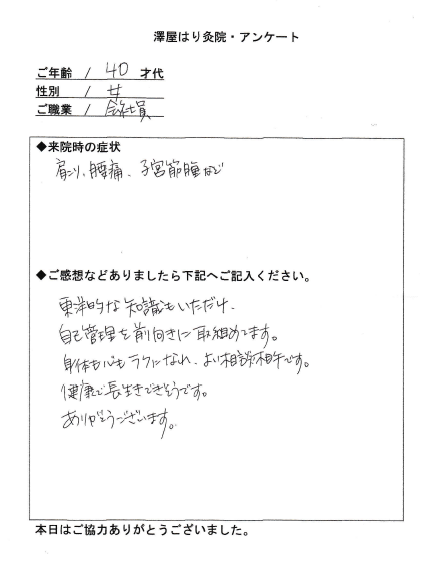 澤屋はり灸院・アンケート
ご年齢 / 40 才代
性別 / 女
ご職業 / 会社員
◆来院時の症状
肩こり、腰痛、子宮筋腫など
◆ご感想などありましたら下記へご記入ください。
東洋的な知識もいただけ、
自己管理を前向きに取組めてます。
身体も心もラクになれ、よい相談相手です。
健康で長生きできそうです。
ありがとうございます。
本日はご協力ありがとうございました。